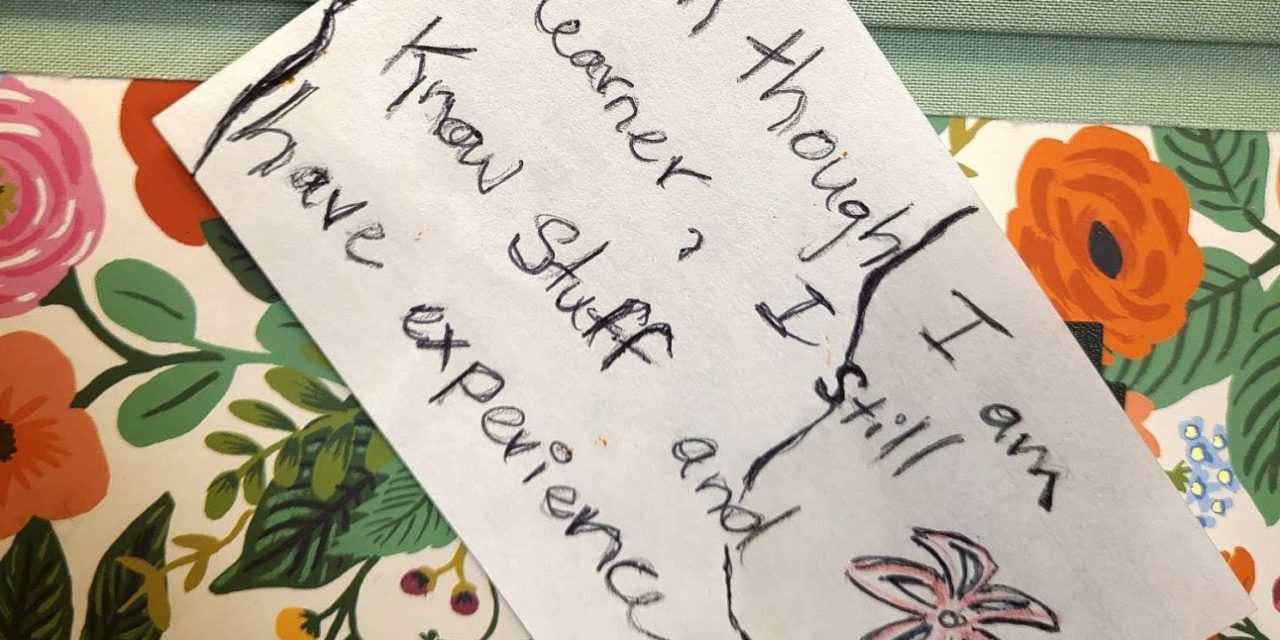 though I am
learner, I still
Know Stuff and
have experience